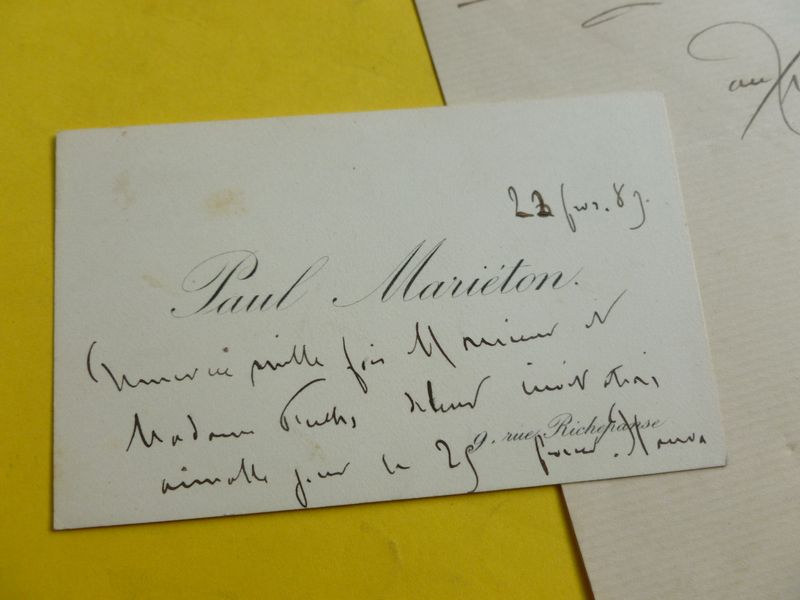 22 fevr. 87.
Paul Mariéton.
remercie mille fois Monsieur et
Madame Fuchs de leur invitation
aimable pour le 25
9, rue Richepanse